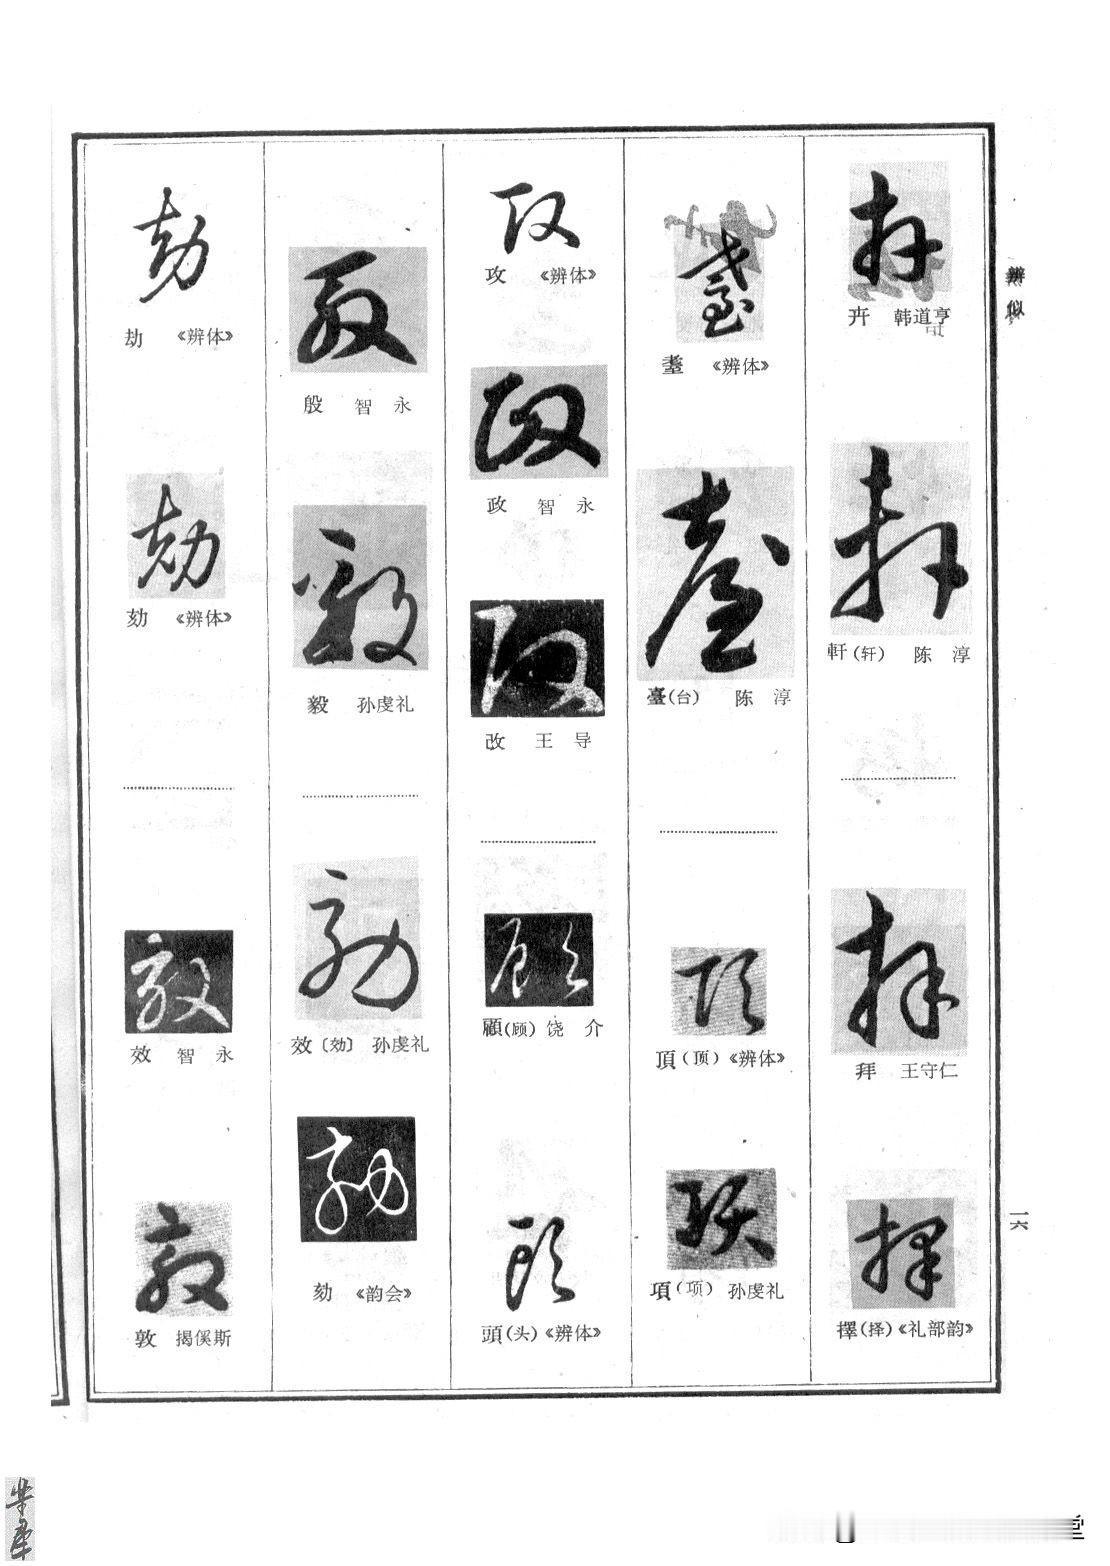 辨似
卉 韩道亨
軒(轩) 陈淳
拜 王守仁
擇(择)《礼部韵》
一六
耋 《辨体》
臺(台) 陈淳
頂(顶)《辨体》
項(项) 孙虔礼
攻 《辨体》
政 智永
改 王导
顧(顾) 饶介
頭(头)《辨体》
殷 智永
毅 孙虔礼
效〔効〕 孙虔礼
劾 《韵会》
劫 《辨体》
効 智永
敦 揭傒斯